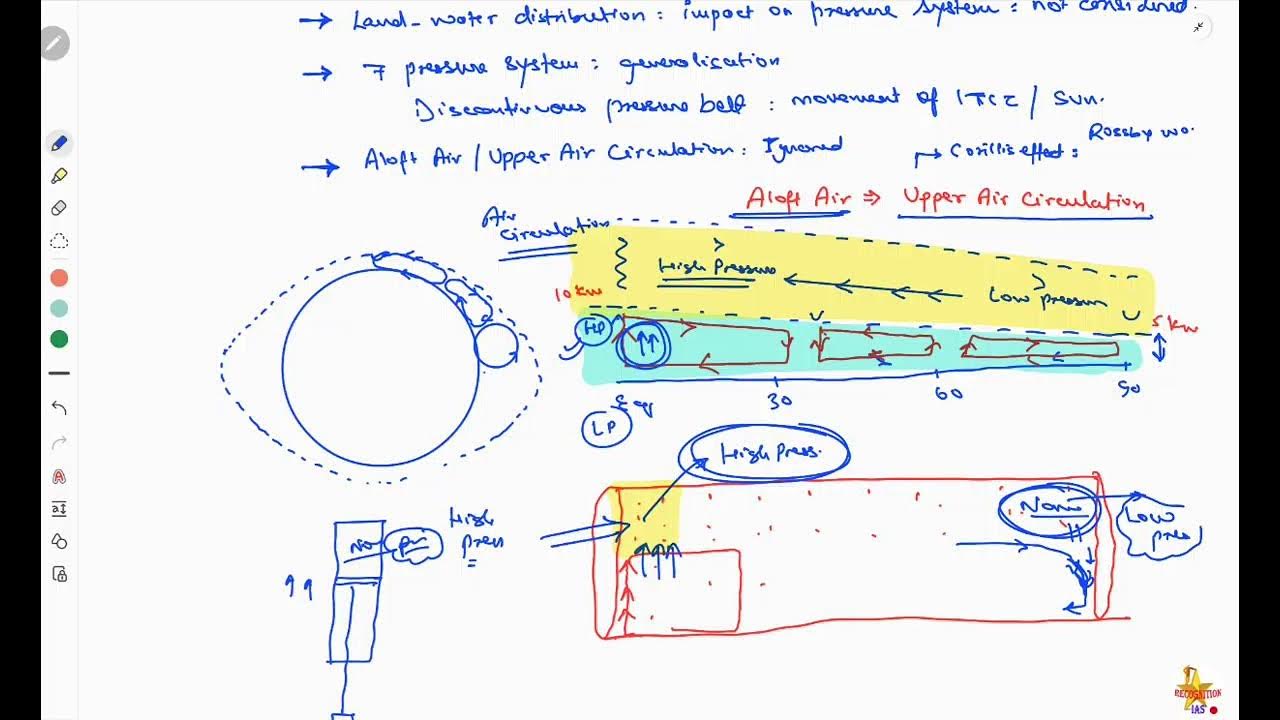 → Land-water distribution : impact on pressure system : not considered.
→ 7 pressure system : generalisation
Discontinuous pressure belt : movement of ITCZ / Sun.
→ Aloft Air / Upper Air Circulation : Ignored
Rossby wa.
Corillis effect :
Aloft Air ⇒ Upper Air Circulation
Air Circulation
High Pressure
Low pressure
10 km
HP
5 km
Eq 30 60 90
LP
High Press.
High press
No Pr
Nomi
Low pres
RECOGNITION
IAS